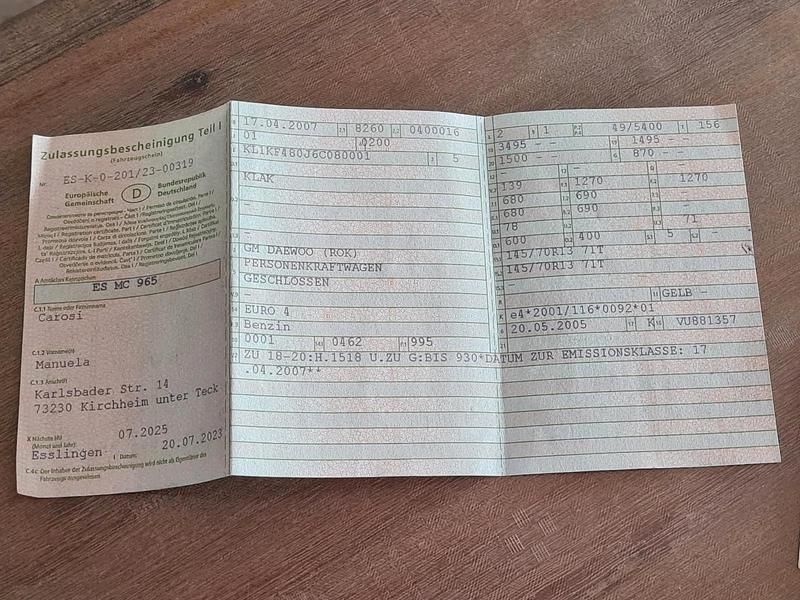 Zulassungsbescheinigung Teil I
(Fahrzeugschein)
Nr. ES-K-0-201/23-00319
Europäische Gemeinschaft
D
Bundesrepublik Deutschland
A Amtliches Kennzeichen
ES MC 965
C.1.1 Name oder Firmenname
Carosi
C.1.2 Vorname(n)
Manuela
C.1.3 Anschrift
Karlsbader Str. 14
73230 Kirchheim unter Teck
X Nächste HU
(Monat und Jahr)
07.2025
Esslingen
I Datum:
20.07.2023
C.4c Der Inhaber der Zulassungsbescheinigung wird nicht als Eigentümer des
Fahrzeugs ausgewiesen.
17.04.2007 2.1 8260 2.2 0400016
01 0200
KL1KF480J6C080001 3 5
-
KLAK
-
-
GM DAEWOO (ROK)
PERSONENKRAFTWAGEN
GESCHLOSSEN
-
EURO 4
Benzin
0001 0462 995
ZU 18-20:H.1518 U.ZU G:BIS 930*DATUM ZUR EMISSIONSKLASSE: 17
.04.2007**
2 1 49/5400 156
3495 - - 1495 - -
1500 - - 870 - -
139 1270 1270
680 690
680 690
78 71
600 400 5 -
145/70R13 71T
145/70R13 71T
-
- GELB -
e4*2001/116*0092*01
20.05.2005 K VU881357